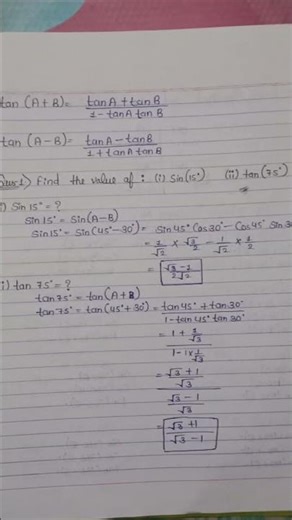 tan (A+B) = tanA + tanB / 1 - tanA tanB
tan (A-B) = tanA - tanB / 1 + tanA tanB
Ques1) Find the value of : (i) Sin(15°) (ii) tan(75°)
i) Sin 15° = ?
Sin 15° = Sin(A-B)
Sin 15° = Sin(45°-30°) = Sin 45° Cos 30° - Cos 45° Sin 30
= 1/√2 × √3/2 - 1/√2 × 1/2
= √3 - 1 / 2√2
i) tan 75° = ?
tan 75° = tan(A+B)
tan 75° = tan(45°+30°) = tan 45° + tan 30° / 1 - tan 45° tan 30°
= 1 + 1/√3 / 1 - 1×1/√3
= √3 + 1 / √3 / √3 - 1 / √3
= √3 + 1 / √3 - 1